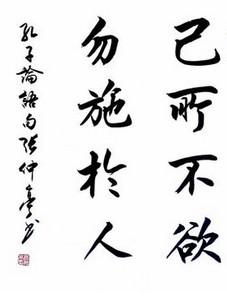 己所不欲
勿施於人
孔子論語句張仲亭書